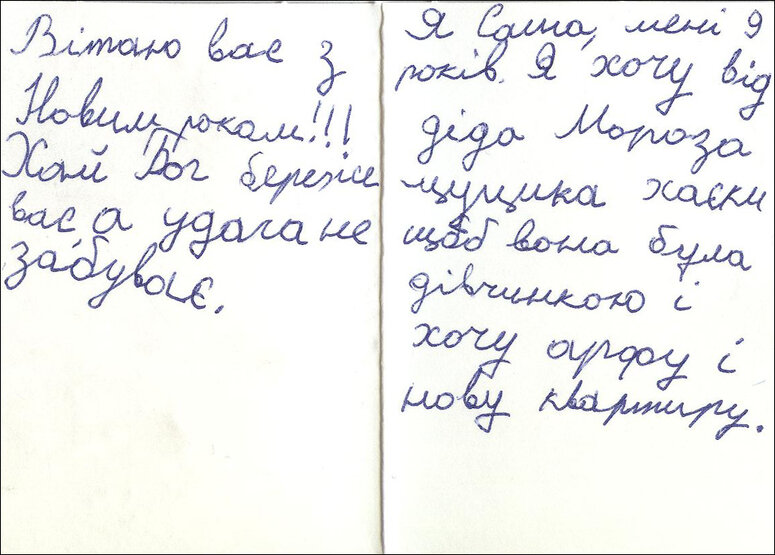 Вітаю вас з
Новим роком!!!
Хай Бог береже
вас, а удача не
забуває.
Я Саша, мені 9
років. Я хочу від
діда Мороза
цуцика хаски
щоб вона була
дівчинкою і
хочу арфу і
нову квартиру.